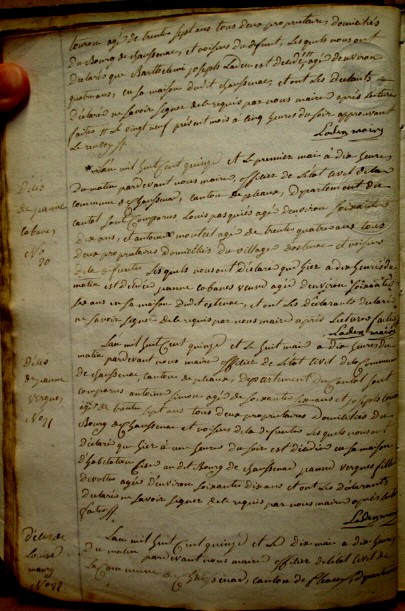 agé de trente sept ans tous deux proprietaires domiciliés
du Bourg de chaussenac, et voisins du defunt, Lesquels nous ont
declarés que Barthelemi joseph Laden est decidé agé denviron
quatre ans, en sa maison dudit chaussenac, et ont Les declarants
declaré ne savoir signer de le requis par nous maire après Lecture
faite. Le vingt neuf présent mois à cinq heures du soir approuvant
Le renvoy
Laden maire
Lan mil huit Cent quinze et Le premier mai à dix heures
du matin pardevant nous maire, officier de Letat civil de la
commune de chaussenac, canton de pleaux, departement du
cantal Sont Comparus Louis pasquiès agé denviron Soixante
dix ans, et antoine montiel agé de trente quatre ans tous
deux proprietaires domiciliés du village et voisins
de la defunte Lesquels nous ont déclaré que hier à dix heures du
matin est décédée jeanne cabanes veuve agée denviron soixante
ans en sa maison dudit et ont Les déclarants declaré
ne savoir signer de le requis par nous maire après Lecture faite
Laden maire
Décès
de jeanne
cabanes,
No 20
Lan mil huit Cent quinze et Le huit mai à dix heures du
matin pardevant nous maire officier de Letat civil de la Commune
de chaussenac, canton de pleaux, departement du Cantal Sont
comparus antoine agé de soixante ans et joseph
agé de trente sept ans tous deux proprietaires domiciliés du
Bourg de chaussenac et voisins de la defunte Lesquels nous ont
déclaré que hier à une heure du soir est décédée en sa maison
d'habitation audit Bourg de chaussenac jeanne vergnes fille
devotte agée denviron soixante dix ans et ont Les déclarants
declaré ne savoir signer de le requis par nous maire après Lecture
faite
Laden maire
Décès
de jeanne
vergnes,
No 21
Lan mil huit Cent quinze et Le dix mai à dix heures
du matin pardevant nous maire officier de Letat civil de
La Commune de chaussenac, canton de pleaux, departement
Décès de
Louise
No 22